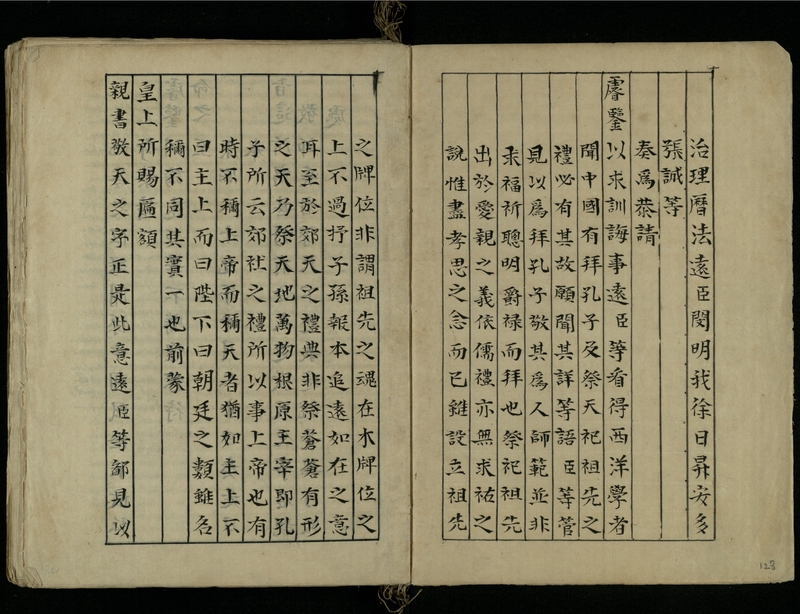 治理曆法遠臣閔明我徐日昇安多
張誠等
奏爲恭請
睿鑒以求訓誨事遠臣等看得西洋學者
聞中國有拜孔子及祭天祀祖先之
禮必有其故願聞其詳等語臣等管
見以爲拜孔子敬其爲人師範並非
求福祈聰明爵禄而拜也祭祀祖先
出於愛親之義依儒禮亦無求祐之
說惟盡孝思之念而已雖設立祖先
之牌位非謂祖先之魂在木牌位之
上不過抒子孫報本追遠如在之意
耳至於郊天之禮典非祭蒼蒼有形
之天乃祭天地萬物根原主宰即孔
子所云郊社之禮所以事上帝也有
時不稱上帝而稱天者猶如主上不
曰主上而曰陛下曰朝廷之類雖名
稱不同其實一也前蒙
皇上所賜匾額
親書敬天之字正是此意遠臣等鄙見以
128